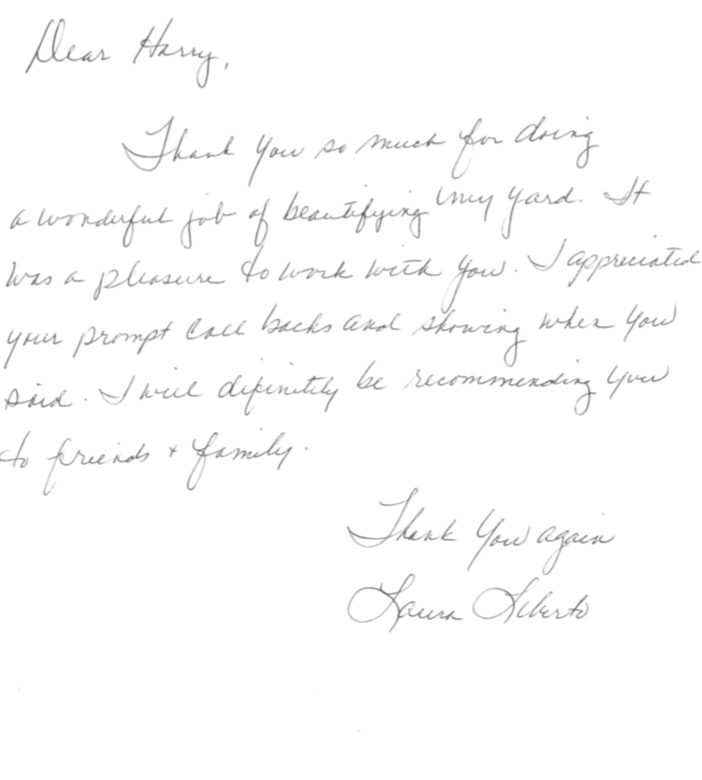 Dear Harry,
Thank You so much for doing
a wonderful job of beautifying my yard. It
was a pleasure to work with you. I appreciated
your prompt call backs and showing when you
said. I will definitely be recommending you
to friends + family.
Thank You again
Laura Liberto